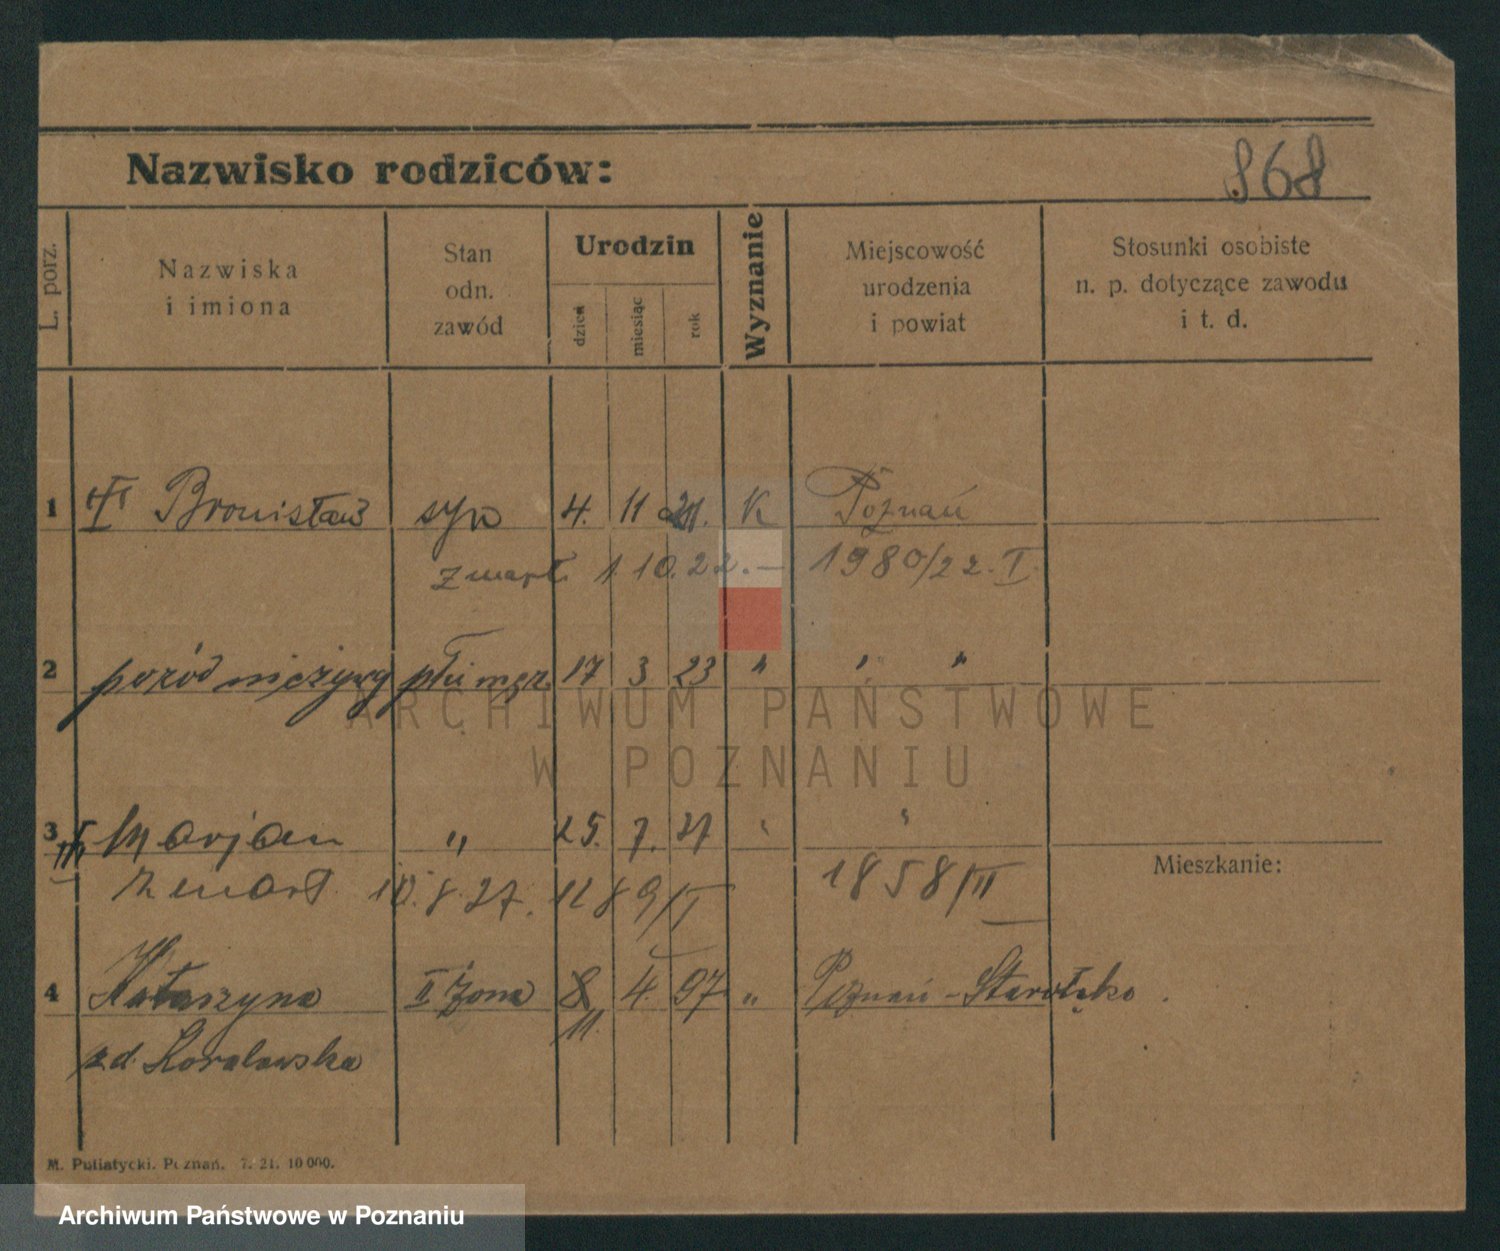 Nazwisko rodziców: 868
L. porz. Nazwiska i imiona Stan odn. zawód Urodzin dzień miesiąc rok Wyznanie Miejscowość urodzenia i powiat Stosunki osobiste n. p. dotyczące zawodu i t. d.
1 Bronisław syn 4. 11 21. K Poznań
zmarł. 1.10.22.— 1980/22. I.
2 poród nieżywy płci męz. 17 3 23 " " "
3 Marjan " 25. 7. 27 " "
zmarł 10.8.27. 1289/I 1858/II
Mieszkanie:
4 Katarzyna II żona 8 4. 97 " Poznań-Starołęka.
11.
zd. Koralewska
M. Puliatycki. Poznań. 7. 21. 10 000.
ARCHIWUM PAŃSTWOWE
W POZNANIU
Archiwum Państwowe w Poznaniu